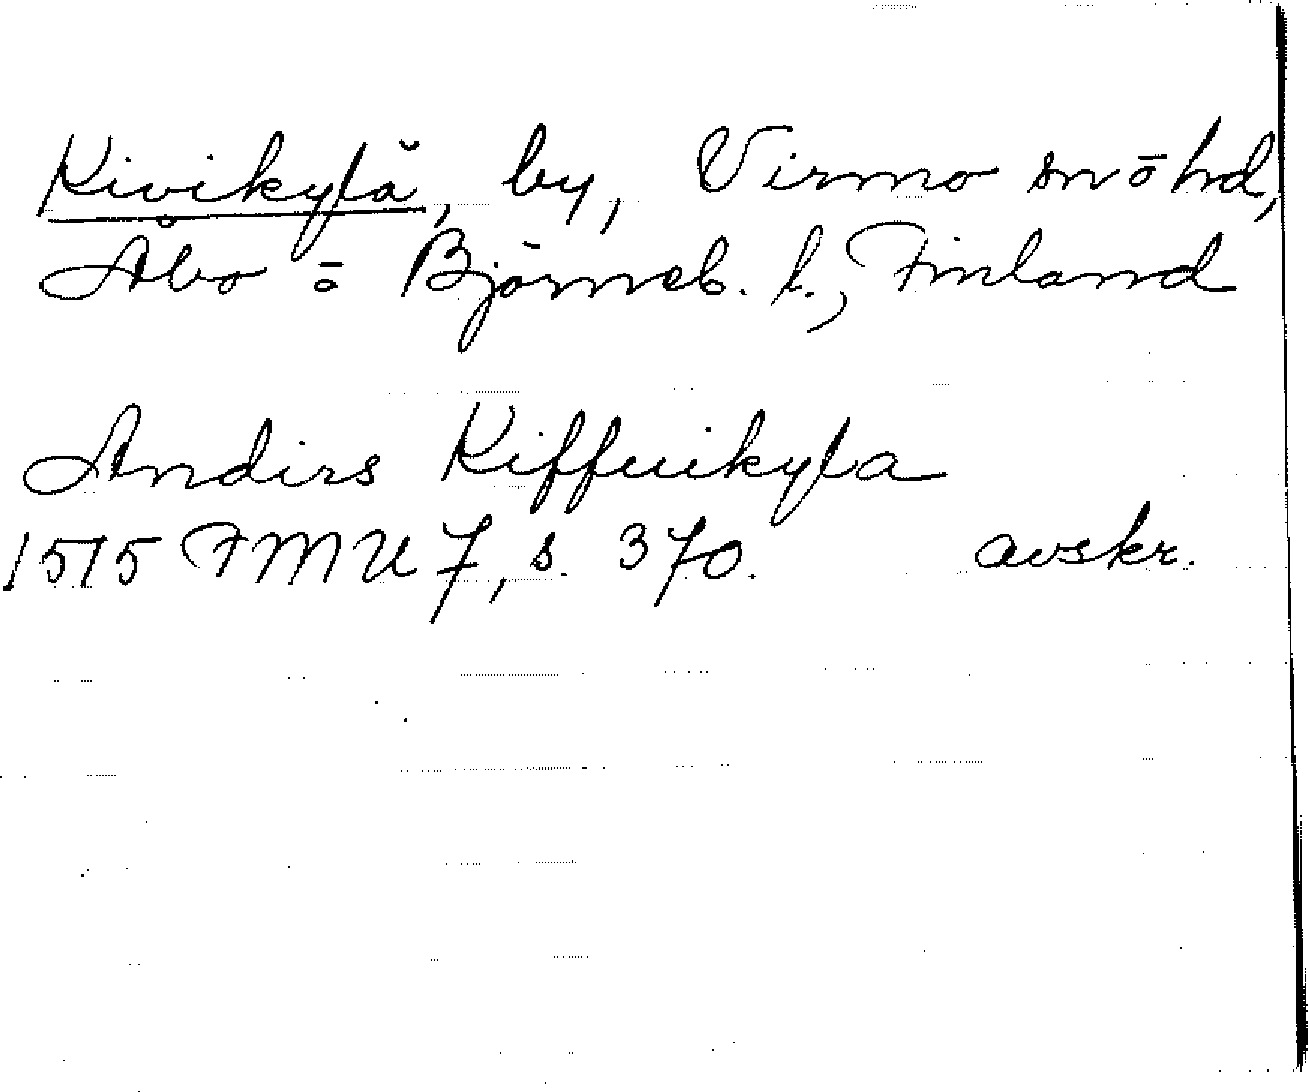 Kivikylä, by, Virmo sn ö hd,
Åbo ō Björneb. l., Finland
Andirs Kiffuikyla
1515 FMU 7, s. 370. avskr.